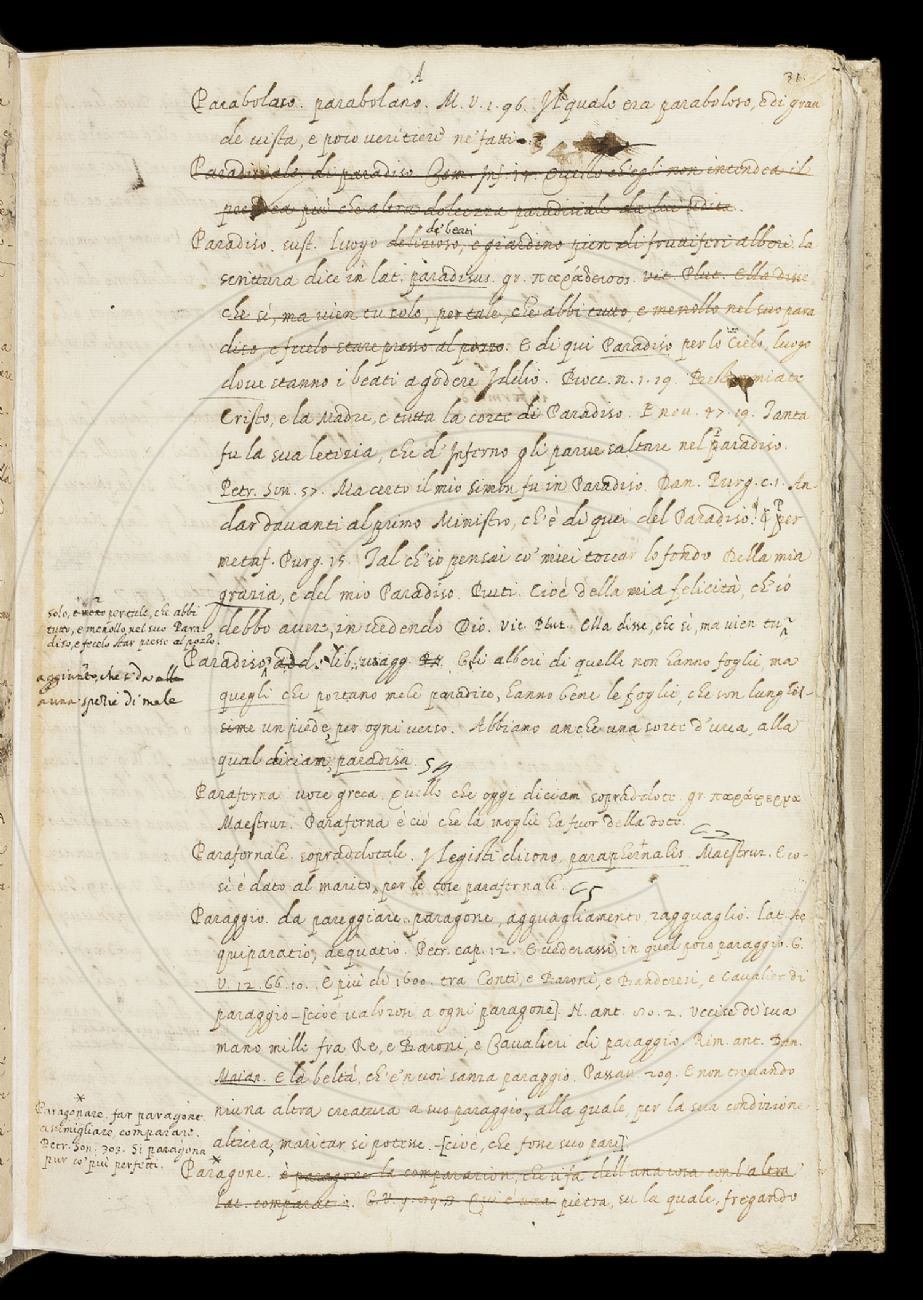 A
31.
Parabolaro. parabolano. M. V. 1. 96. Il quale era paraboloso, e di gran
de vista, e poco veritiere ne' fatti.
Paradisiale. di paradiso. Com. Inf. 14. Quello ch'egli non intendea il
poetica più che altra dolcezza paradisiale da lui udita.
Paradiso. sust. luogo delizioso, e giardino pien di fruttiferi alberi. la
de' beati
scrittura dice in lat. paradisus. gr. παράδεισος. Vit. Plut. Ella disse
che sì, ma vien tu solo, per tale, che abbi tutto, e menollo nel suo para
diso, e fecelo stare presso al pozzo. E di qui Paradiso per lo Cielo, luogo
dove stanno i beati a godere Iddio. Bocc. n. 1. 19.
Cristo, e la Madre, e tutta la corte di Paradiso. E nov. 47. 19. Tanta
fu la sua letizia, che d'Inferno gli parve saltare nel paradiso.
Petr. Son. 57. Ma certo il mio Simon fu in Paradiso. Dan. Purg. c. 1. An
dar davanti al primo Ministro, ch'è di quei del Paradiso. ¶ per
metaf. Purg. 15. Tal ch'io pensai co' miei toccar lo fondo Della mia
grazia, e del mio Paradiso. Buti. Cioè della mia felicità, ch'io
debbo avere, in vedendo Dio. Vit. Plut. Ella disse, che sì, ma vien tu
solo, per tale, che abbi
tutto, e menollo nel suo Para
diso, e fecelo star presso al pozzo.
Paradiso, add. lib. viagg. Gli alberi di quelle non hanno foglie, ma
aggiunto, che si dà alle
a una spezie di mele
quegli che portano mele paradiso, hanno bene le foglie, che son lunghis-
sime un piede, per ogni verso. Abbiano anche una sorte d'uva, alla
qual diciam, paradisa.
Paraferna voce greca. Quello che oggi diciam sopraddote. gr. παράφερνα
Maestruz. Paraferna è ciò che la moglie ha fuor della dote.
Parafernale. sopraddotale. I legisti dicono, paraphernalis. Maestruz. E co-
sì è dato al marito, per le cose parafernali.
Paraggio. da pareggiare. paragone, agguagliamento, ragguaglio. Lat. Ae
quiparatio, aequatio. Petr. cap. 12. E vederassi, in quel poco paraggio. G.
V. 12. 66. 10. E più di 1600. tra Conti, e Baroni, e Banderesi, e Cavalier di
paraggio-[cioè valorosi a ogni paragone]. N. ant. 20. 2. Uccise di sua
mano mille fra Re, e Baroni, e Cavalieri di paraggio. Rim. ant. Dan.
Maian. E la beltà, ch'è 'n voi sanza paraggio. Passav. 209. E non trovando
niuna altra creatura a suo paraggio, alla quale, per la sua condizione
altiera, maritar si potesse.-[cioè, che fosse suo pare].
Paragonare. far paragone.
assimigliare, comparare.
Petr. Son. 303. Si paragona
pur co' più perfetti.
Paragone. è paragone la comparazion, che si fa dell'una cosa con l'altra
Lat. comparatio. Qui è una pietra, su la quale, fregando